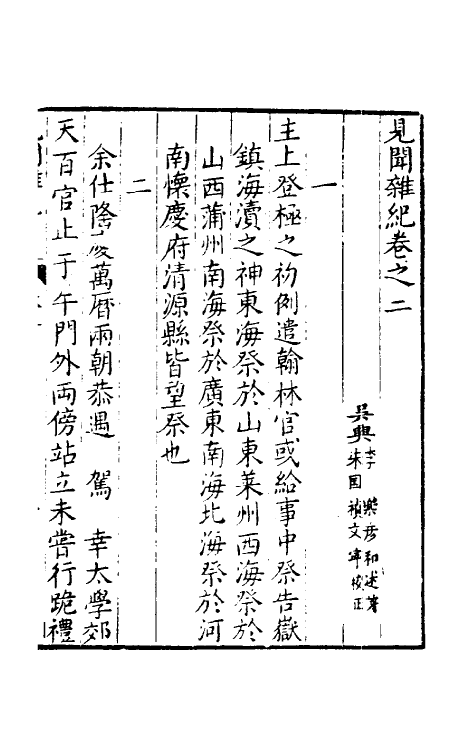 見聞雜紀卷之二
吳興李 樂彥和述著
朱國禎文寧校正
一
主上登極之初例遣翰林官或給事中祭告嶽
鎮海瀆之神東海祭於山東萊州西海祭於
山西蒲州南海祭於廣東南海北海祭於河
南懷慶府清源縣皆望祭也
二
余仕隆慶萬曆兩朝恭遇 駕 幸太學郊
天百官止于午門外兩傍站立未嘗行跪禮